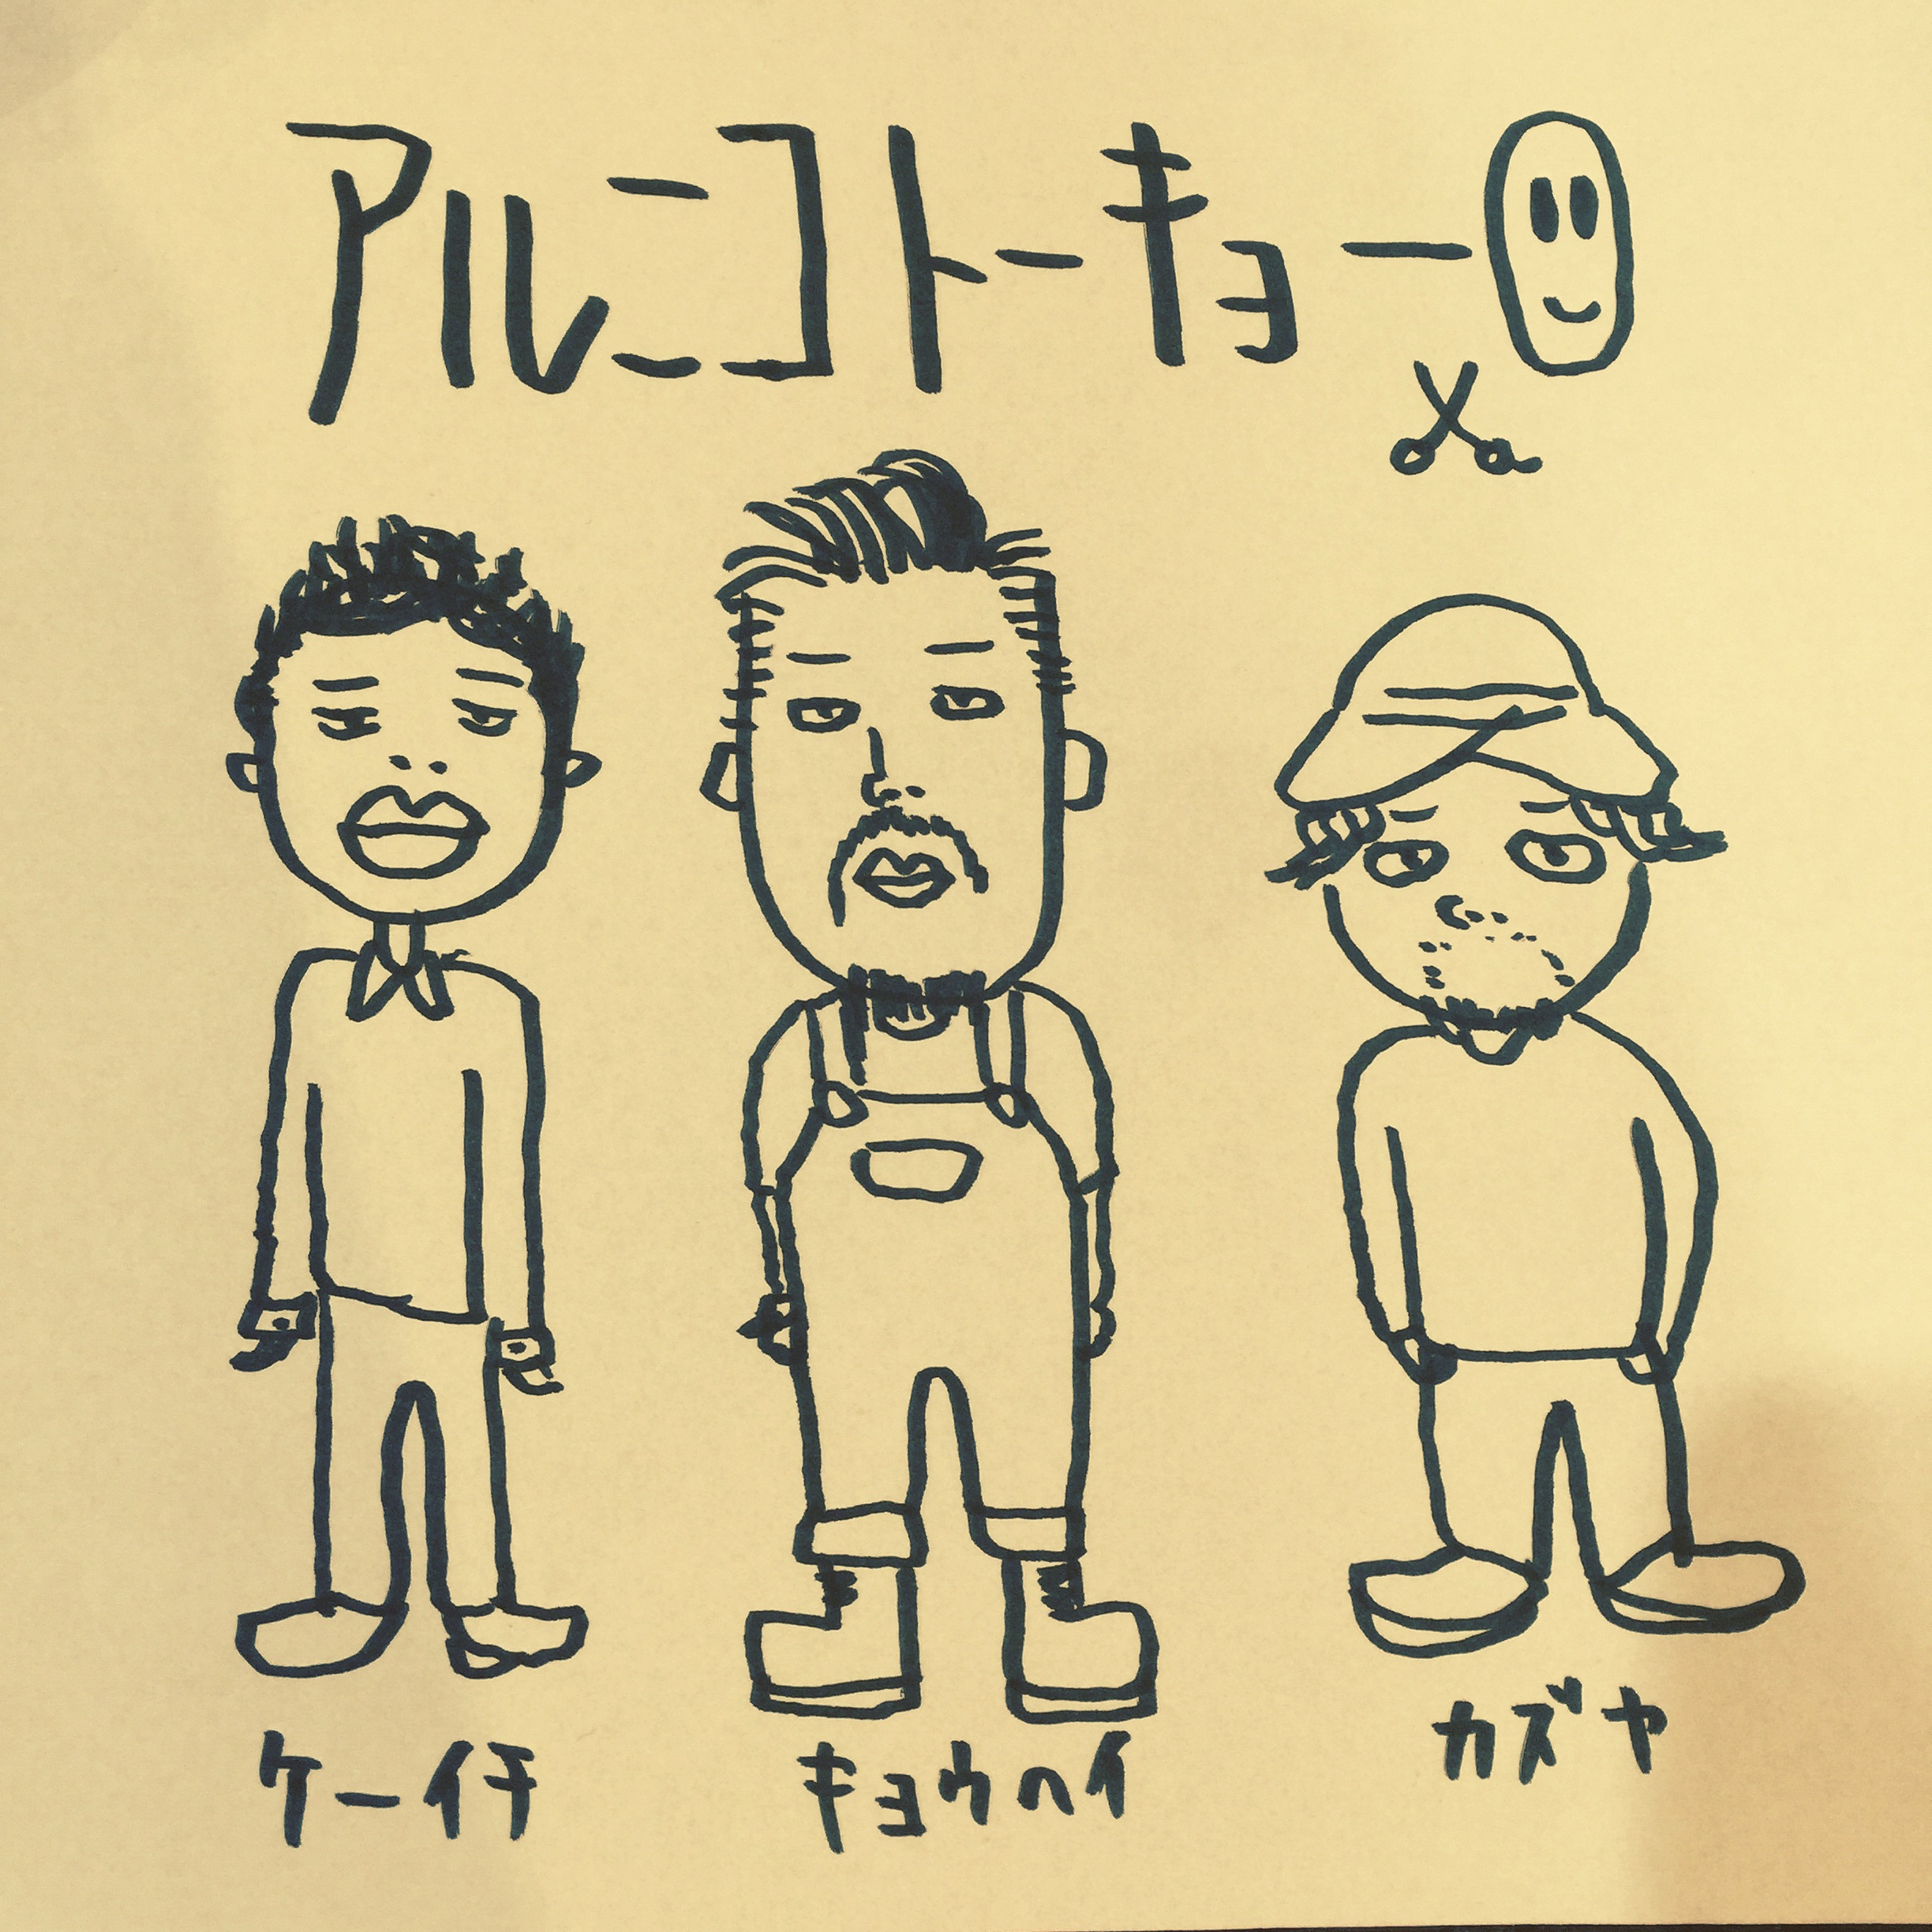 アルニコトーキョー
ケーイチ
キョウヘイ
カズヤ